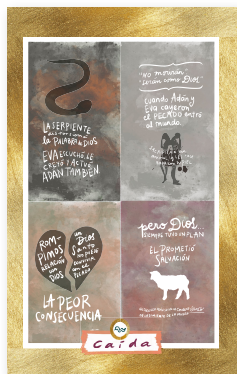 LA SERPIENTE
LA PALABRA DE DIOS
EVA ESCUCHÓ, LE
CREYÓ Y ACTUÓ
ADÁN TAMBIÉN.
"NO MORIRÁN"
"SERÁN COMO DIOS"
Cuando Adán y
Eva cayeron
el PECADO entró
al mundo.
ROM-
PIMOS
RELACIÓN
CON
DIOS
UN
DIOS
SANTO
NO PUEDE
CONVIVIR
CON EL
PECADO
LA PEOR
CONSECUENCIA.
pero Dios...
SIEMPRE TUVO UN PLAN
ÉL PROMETIÓ
SALVACIÓN
caída